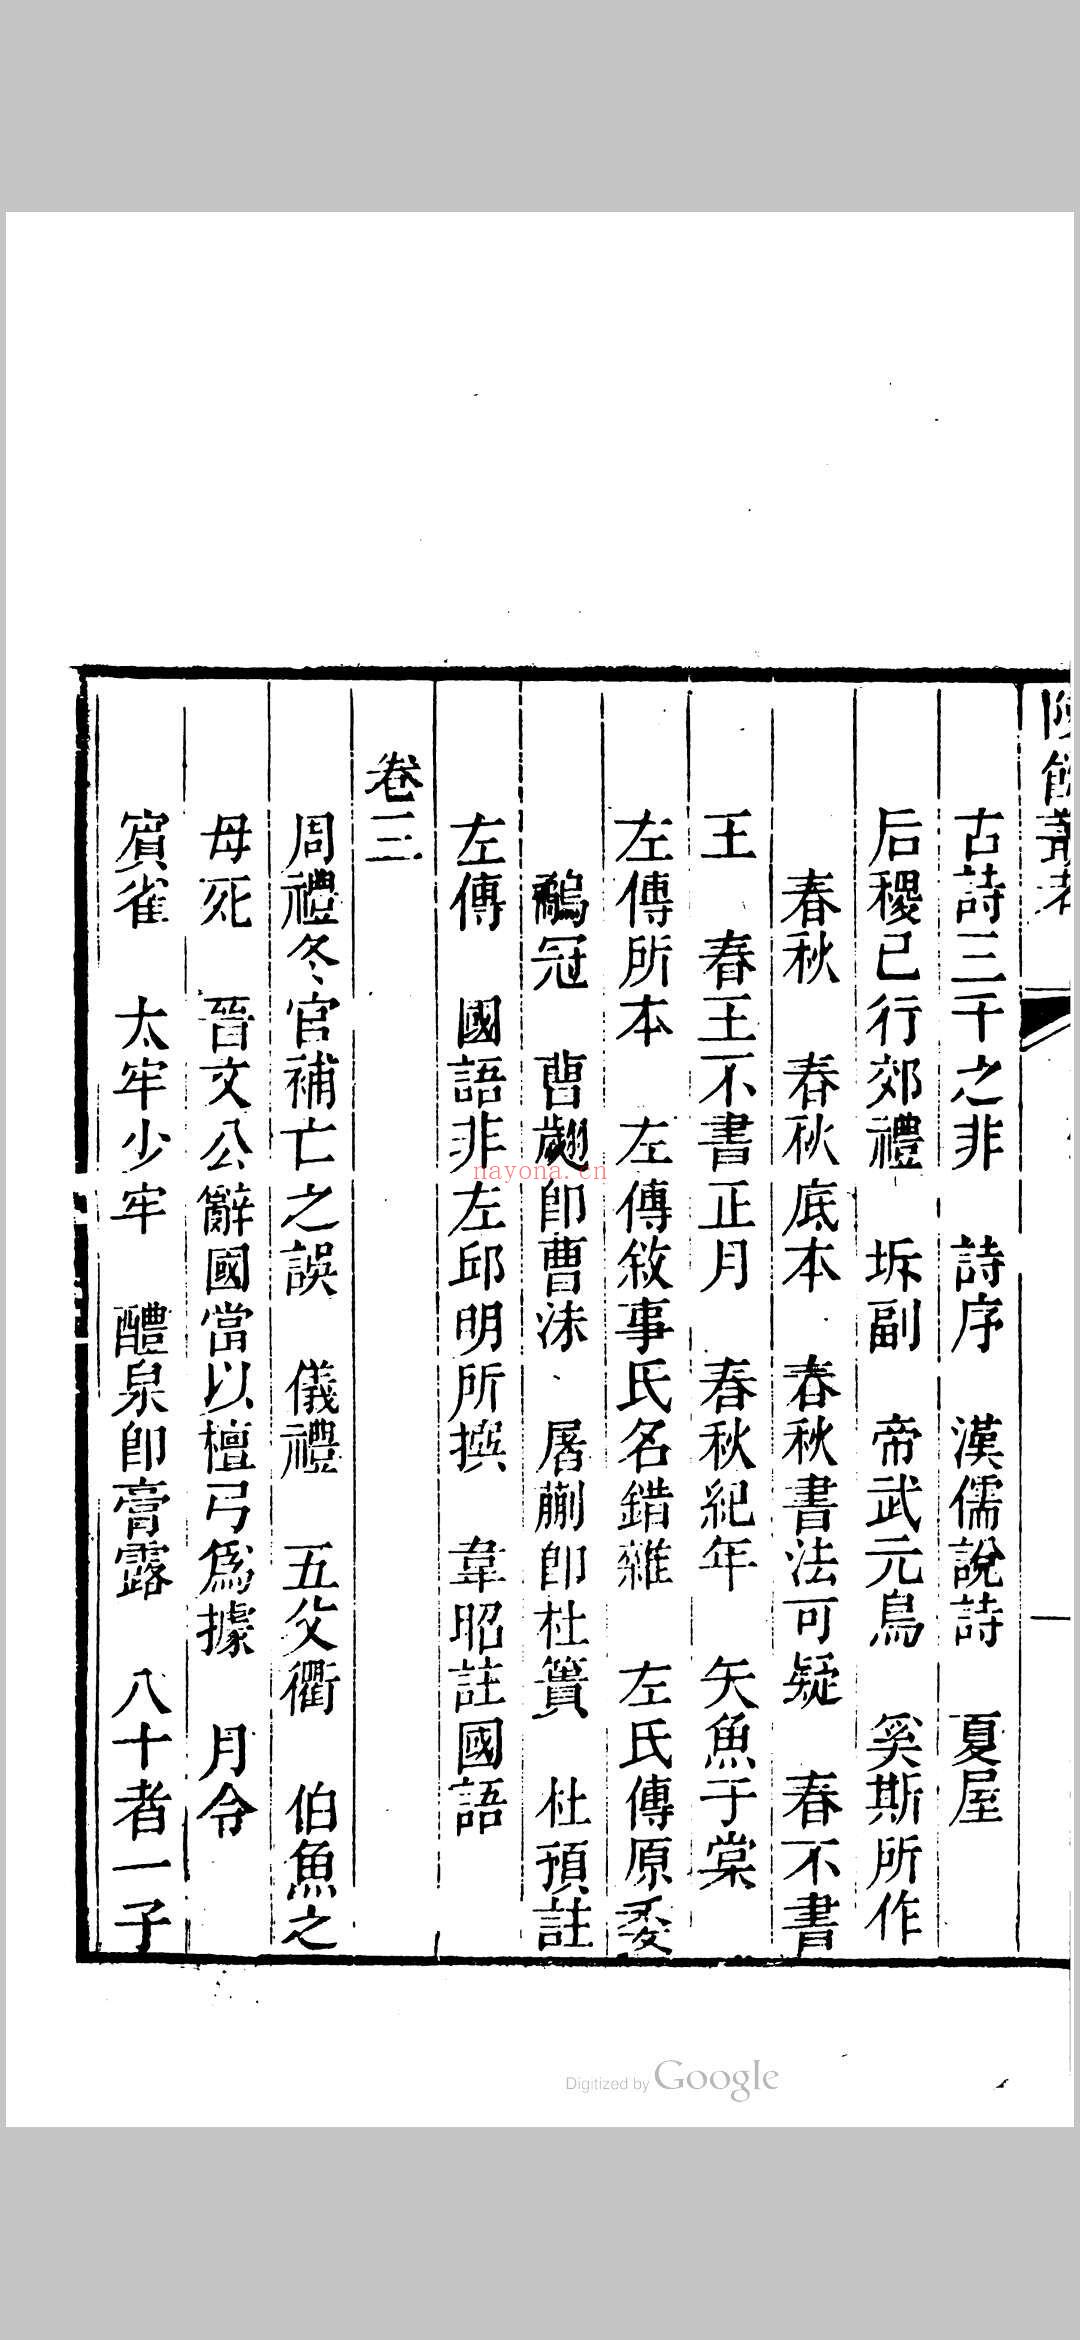 陔餘叢考
一
古詩三千之非　詩序　漢儒說詩　夏屋
后稷已行郊禮　坼副　帝武元鳥　奚斯所作
春秋　春秋底本　春秋書法可疑　春不書
王　春王不書正月　春秋紀年　矢魚于棠
左傳所本　左傳敘事氏名錯雜　左氏傳原委
鷸冠　曹翽卽曹沬　屠蒯卽杜簣　杜預註
左傳　國語非左邱明所撰　韋昭註國語
卷三
周禮冬官補亡之誤　儀禮　五父衢　伯魚之
母死　晉文公辭國當以檀弓爲據　月令
賓雀　太牢少牢　醴泉卽膏露　八十者一子
nayona.cn
Digitized by Google